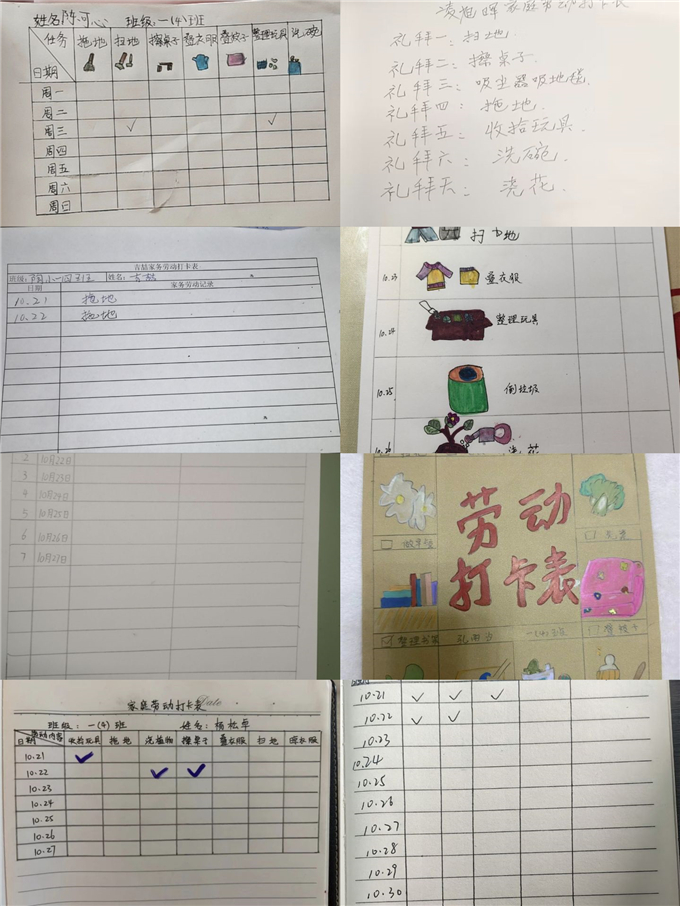 姓名陈可心 班级一(4)班
任务 拖地 扫地 擦桌子 叠衣服 叠被子 整理玩具 洗碗
日期
周一
周二
周三 ✓ ✓
周四
周五
周六
周日
家庭劳动打卡表
礼拜一：扫地.
礼拜二：擦桌子.
礼拜三：吸尘器吸地毯
礼拜四：拖地.
礼拜五：收拾玩具.
礼拜六：洗碗.
礼拜天：浇花.
吉喆家务劳动打卡表
班级: 陶小一四班 姓名: 吉喆
日期 家务劳动记录
10.21 拖地
10.22 扫地
扫地
10.23 叠衣服
10.24 整理玩具
10.25 倒垃圾
10.26 浇花
2 10月22日
3 10月23日
4 10月24日
5 10月25日
6 10月26日
7 10月27日
劳动
打卡表
整理书架 一(4)班 叠被子
家庭劳动打卡表 Date
班级：一(4)班 姓名：杨松苹
劳动内容 收拾玩具 拖地 浇植物 擦桌子 叠衣服 扫地 晒衣服
日期
10.21 ✓
10.22 ✓ ✓
10.23
10.24
10.25
10.26
10.27
10.21 ✓ ✓ ✓
10.22 ✓ ✓
10.23
10.24
10.25
10.26
10.27
10.28
10.29
10.30